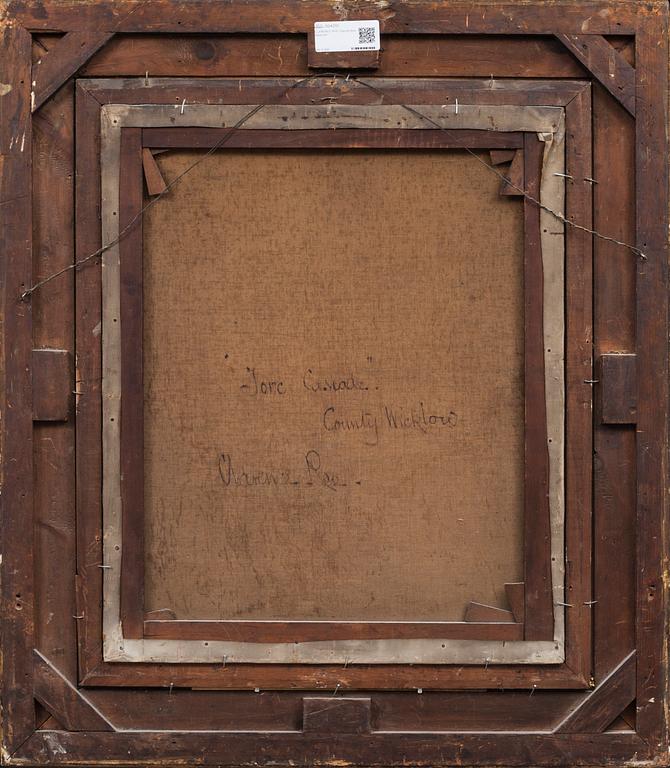 "Torc Cascade".
County Wicklow
Clarence Roe.